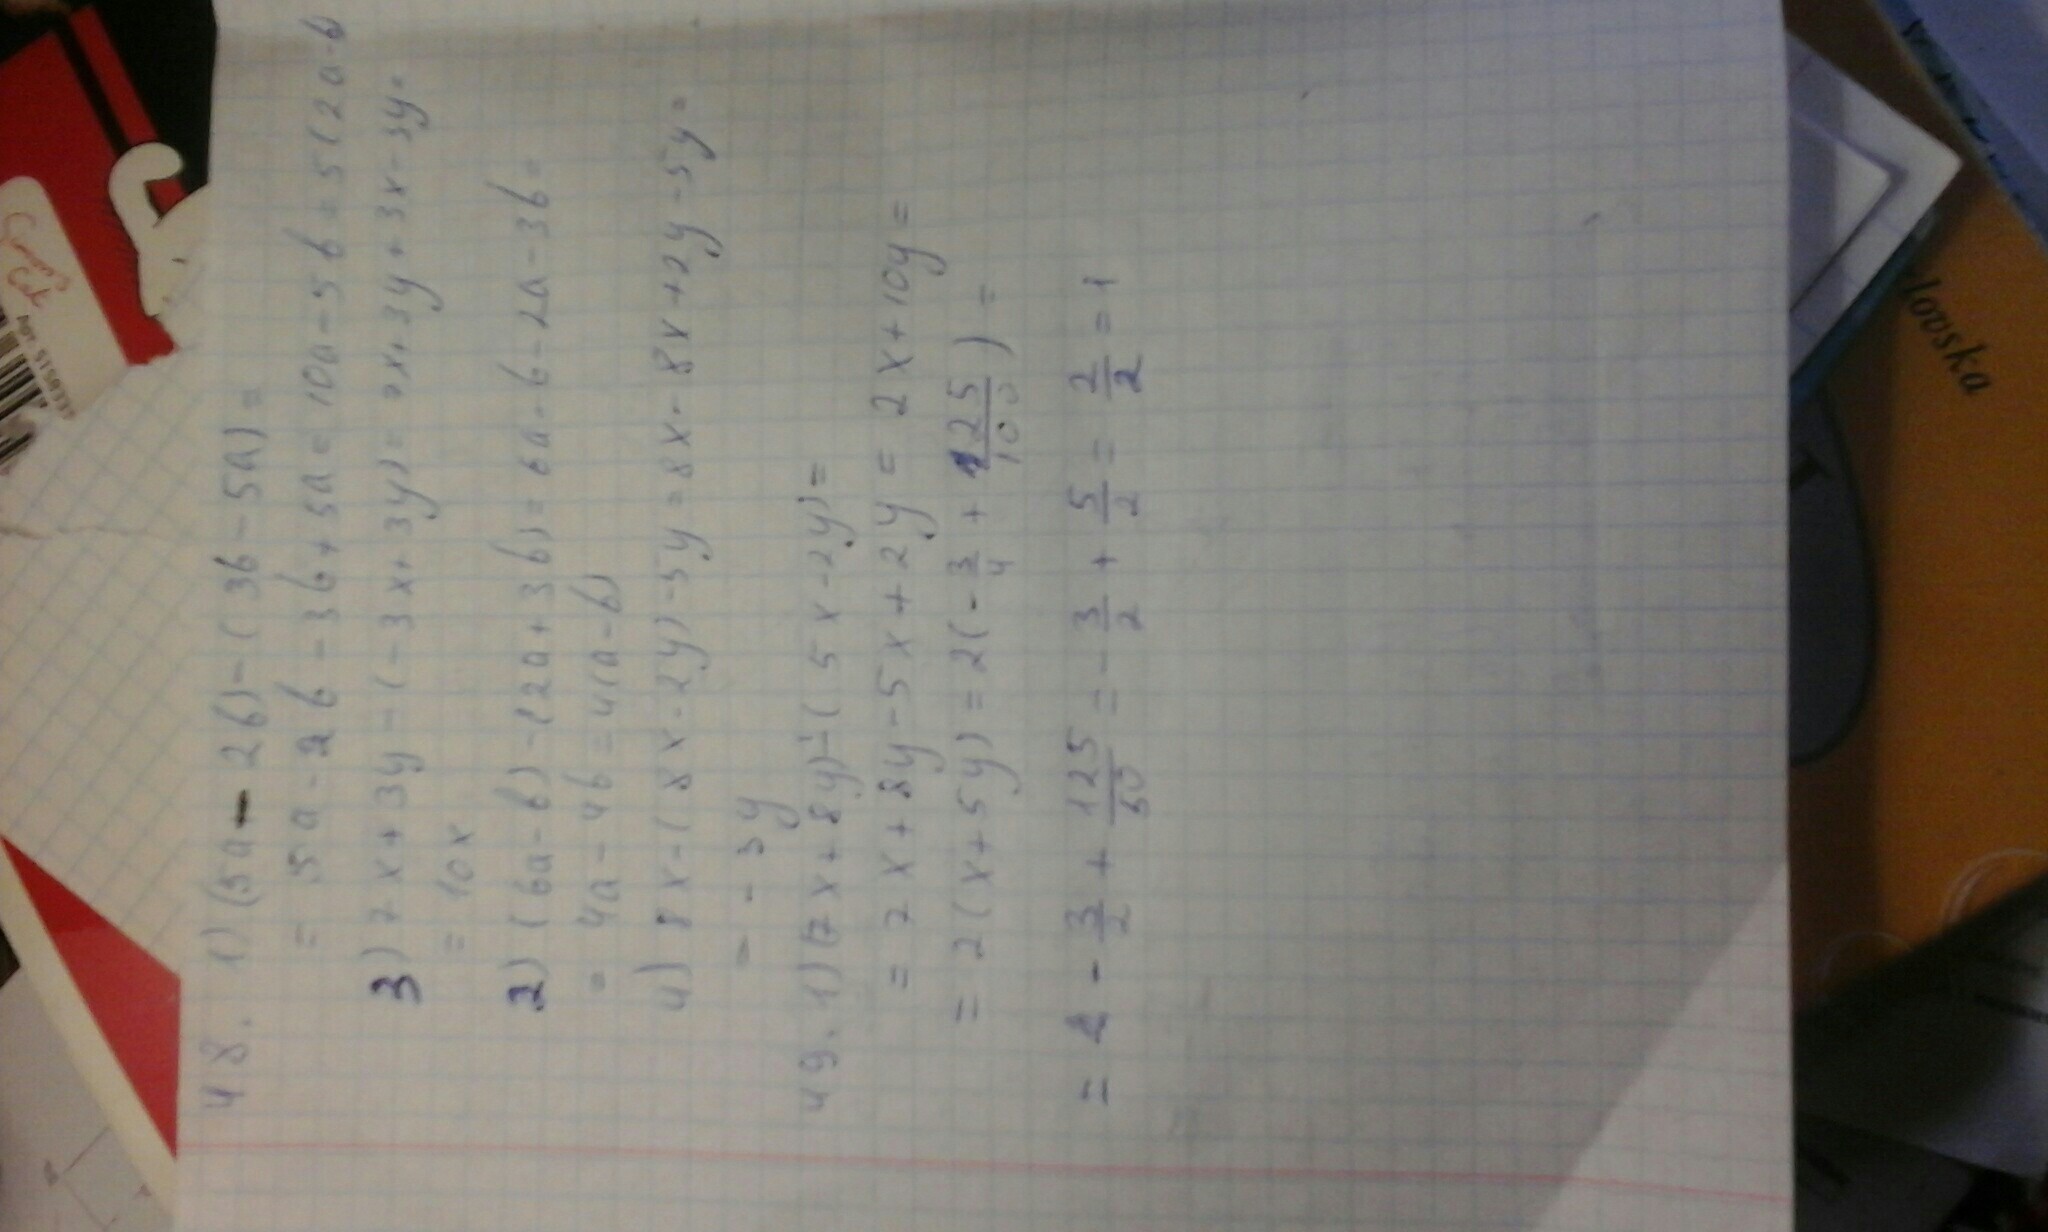 48. 1) (5a - 2b) - (3b - 5a) =
= 5a - 2b - 3b + 5a = 10a - 5b = 5(2a - b
3) 7x + 3y - (-3x + 3y) = 7x + 3y + 3x - 3y =
= 10x
2) (6a - b) - (2a + 3b) = 6a - b - 2a - 3b =
= 4a - 4b = 4(a - b)
4) 8x - (8x - 2y) - 5y = 8x - 8x + 2y - 5y =
= - 3y
49. 1) (7x + 8y) - (5x - 2y) =
= 7x + 8y - 5x + 2y = 2x + 10y =
= 2(x + 5y) = 2(- 3/4 + 125/100) =
= - 3/2 + 125/50 = - 3/2 + 5/2 = 2/2 = 1
Simon's
Cat
Арт. ST50337
lovska